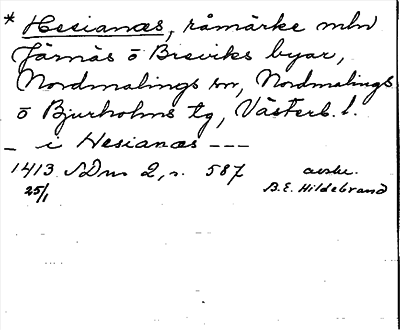 * Hesianæs, råmärke mln
Järnäs o Breviks byar,
Nordmalings sn, Nordmalings
o Bjurholms tg, Västerb. l.
_ i Hesianæs ---
1413 SDns 2, s. 587 avskr.
25/1 B.E. Hildebrand